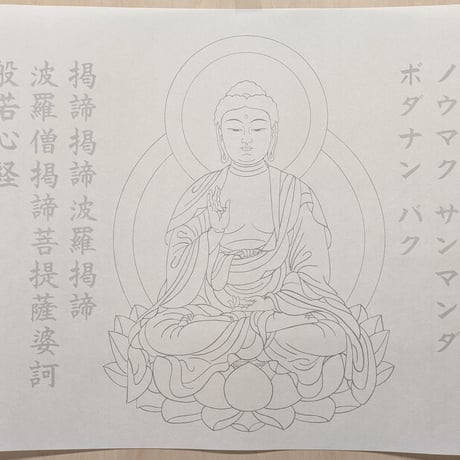 ノウマク サンマンダ
ボダナン バク
掲諦掲諦波羅掲諦
波羅僧掲諦菩提薩婆訶
般若心経